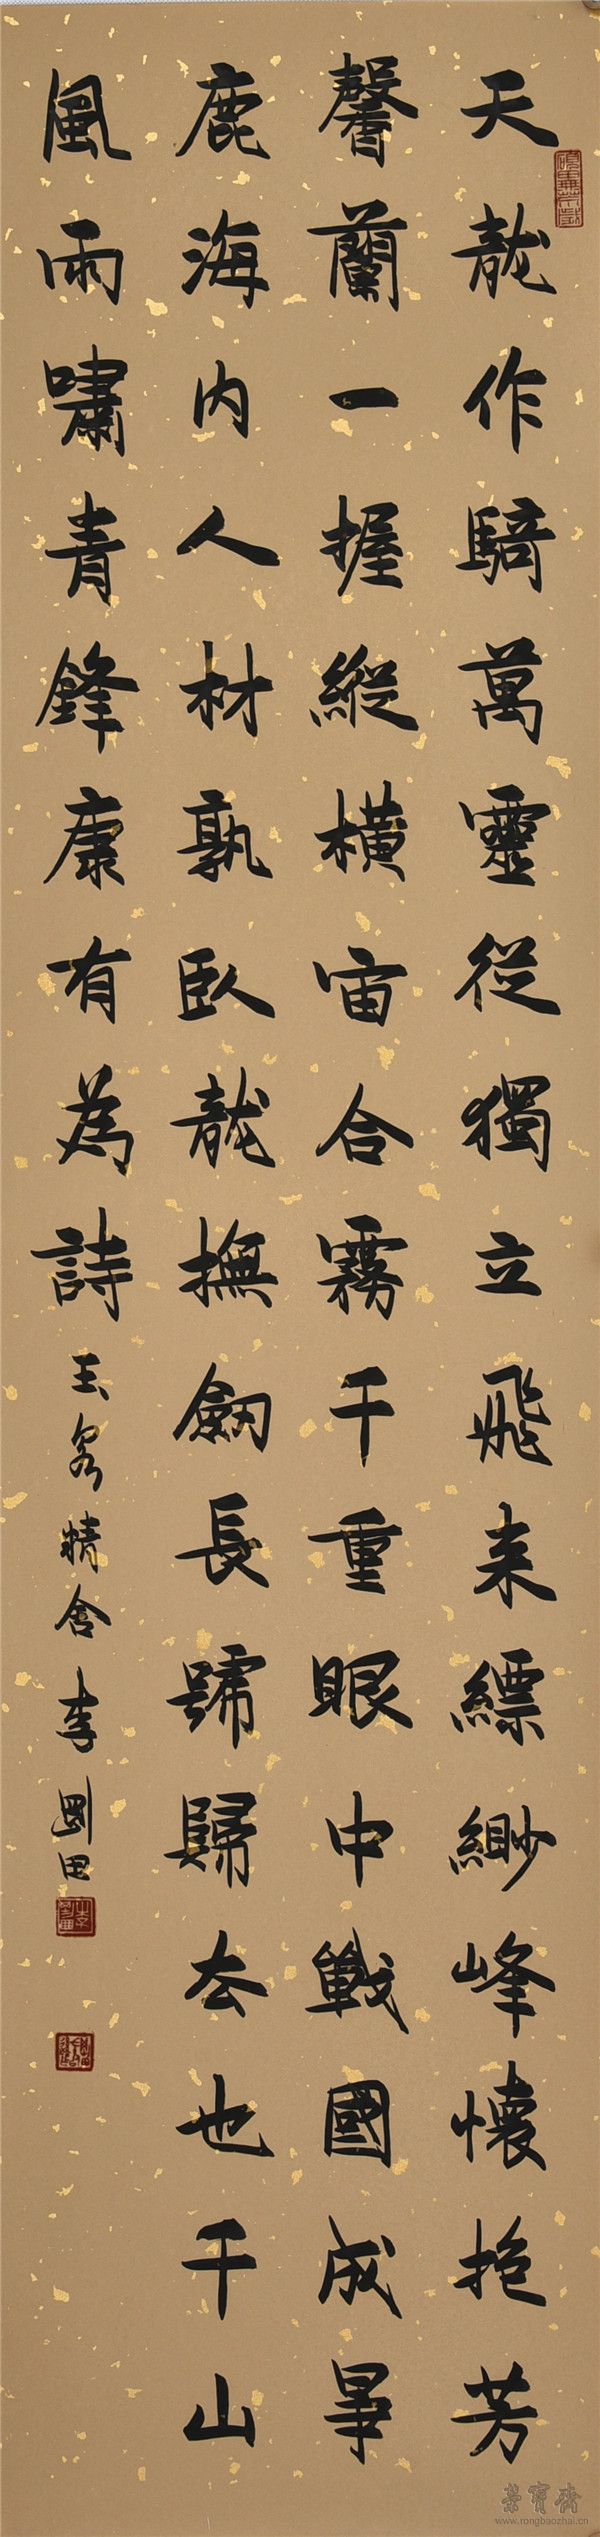 天龍作騎萬靈從獨立飛来縹緲峰懷抱芳
馨蘭一握縱橫宙合霧千重眼中戰國成爭
鹿海内人材孰臥龍撫劒長號歸去也千山
風雨嘯青鋒康有為詩
玉泉精舍李剛田
榮寶齋
www.rongbaozhai.cn